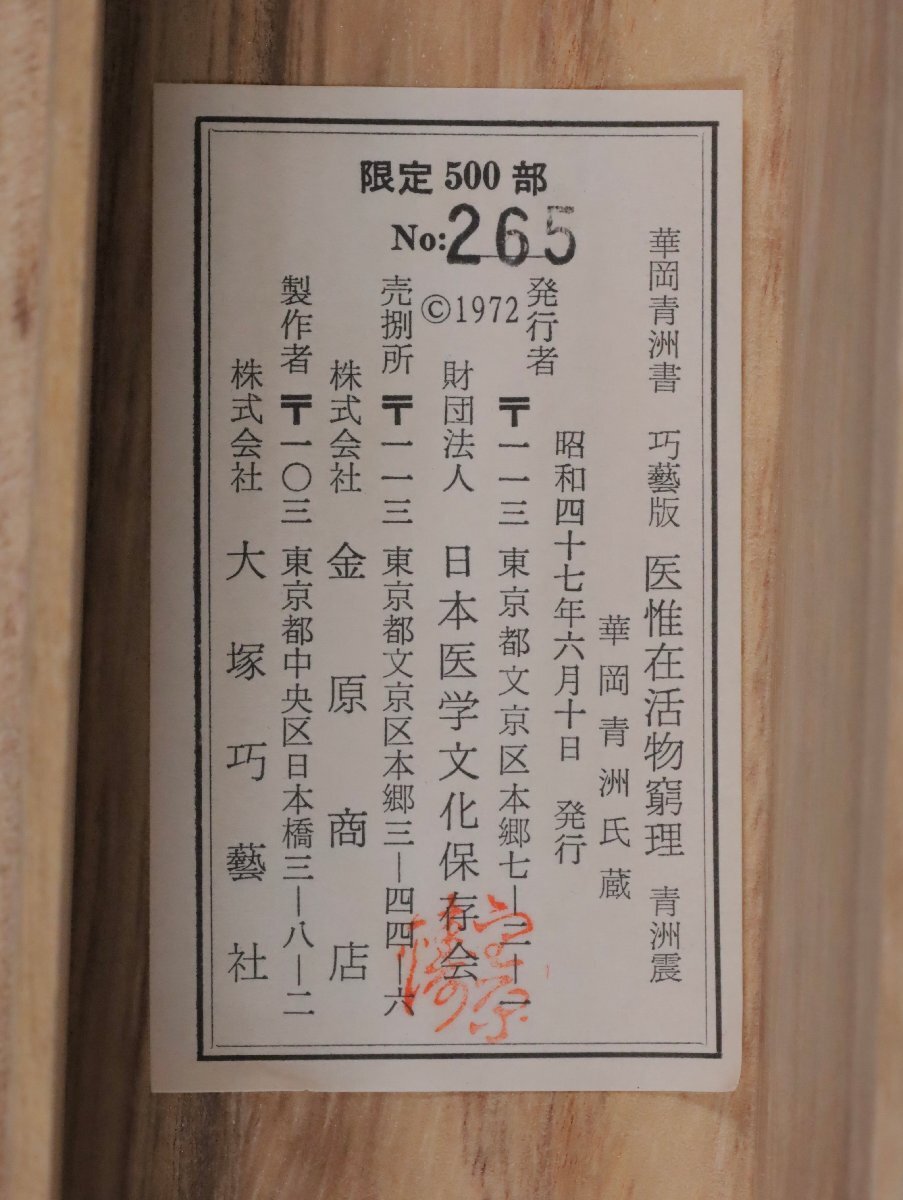 限定500部
No:265
華岡青洲書　巧藝版　医惟在活物窮理　青洲震
華岡青洲氏蔵
昭和四十七年六月十日　発行
発行者　〒一一三　東京都文京区本郷七—二—一
©1972
財団法人　日本医学文化保存会
売捌所　〒一一三　東京都文京区本郷三—四四—六
株式会社　金原商店
製作者　〒一〇三　東京都中央区日本橋三—八—二
株式会社　大塚巧藝社